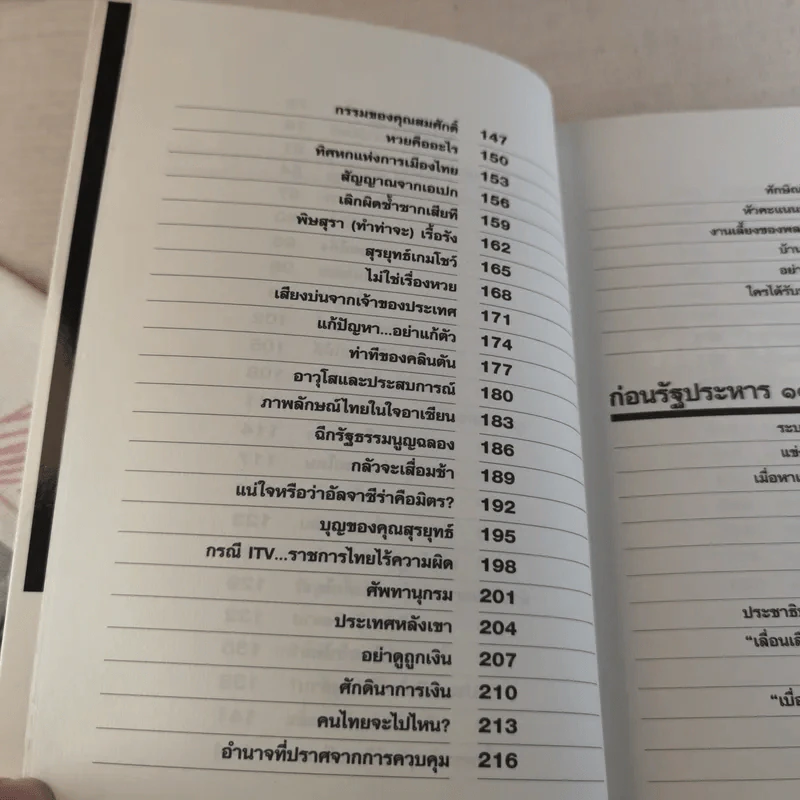 กรรมของคุณสมศักดิ์ 147
หวยคืออะไร 150
ทิศหกแห่งการเมืองไทย 153
สัญญาณจากเอเปก 156
เลิกผิดซ้ำซากเสียที 159
พิษสุรา (ทำท่าจะ) เรื้อรัง 162
สุรยุทธ์เกมโชว์ 165
ไม่ใช่เรื่องหวย 168
เสียงบ่นจากเจ้าของประเทศ 171
แก้ปัญหา...อย่าแก้ตัว 174
ท่าทีของคลินตัน 177
อาวุโสและประสบการณ์ 180
ภาพลักษณ์ไทยในใจอาเซียน 183
ฉีกรัฐธรรมนูญฉลอง 186
กลัวจะเสื่อมช้า 189
แน่ใจหรือว่าอัลจาซีร่าคือมิตร? 192
บุญของคุณสุรยุทธ์ 195
กรณี ITV...ราชการไทยไร้ความผิด 198
ศัพทานุกรม 201
ประเทศหลังเขา 204
อย่าดูถูกเงิน 207
ศักดินาการเงิน 210
คนไทยจะไปไหน? 213
อำนาจที่ปราศจากการควบคุม 216
ทักษิณ
หัวคะแนน
งานเลี้ยงของพล
บ้าน
อย่า
ใครได้รับ
ก่อนรัฐประหาร ๑๙
ระบ
แข่
เมื่อหาเ
ประชาธิป
"เลื่อนเลื
"เบื่อ